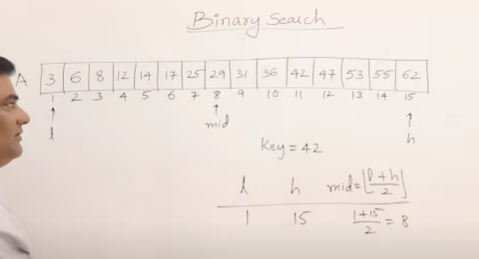 Binary Search
A 3 6 8 12 14 17 25 29 31 36 42 47 53 55 62
1 2 3 4 5 6 7 8 9 10 11 12 13 14 15
l mid h
Key = 42
l h mid=⌊l+h/2⌋
1 15 1+15/2 = 8